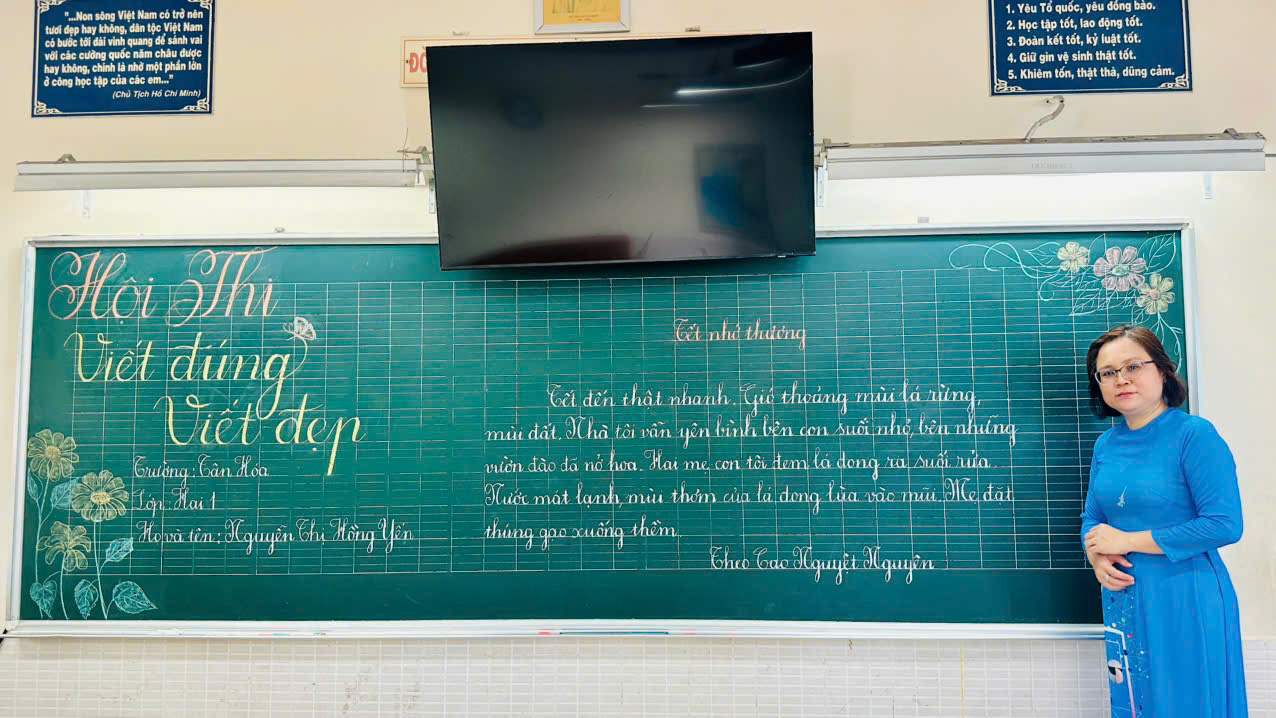 "...Non sông Việt Nam có trở nên
tươi đẹp hay không, dân tộc Việt Nam
có bước tới đài vinh quang để sánh vai
với các cường quốc năm châu được
hay không, chính là nhờ một phần lớn
ở công học tập của các em..."
(Chủ Tịch Hồ Chí Minh)
1. Yêu Tổ quốc, yêu đồng bào.
2. Học tập tốt, lao động tốt.
3. Đoàn kết tốt, kỷ luật tốt.
4. Giữ gìn vệ sinh thật tốt.
5. Khiêm tốn, thật thà, dũng cảm.
Hội Thi
Viết đúng
Viết đẹp
Trường: Tân Hóa
Lớp: Hai 1
Họ và tên: Nguyễn Thị Hồng Yến
Tết nhớ thương
Tết đến thật nhanh. Gió thoảng mùi lá rừng,
mùi đất. Nhà tôi vẫn yên bình bên con suối nhỏ, bên những
vườn đào đã nở hoa. Hai mẹ con tôi đem lá dong ra suối rửa.
Nước mát lạnh, mùi thơm của lá dong lùa vào mũi. Mẹ đặt
thúng gạo xuống thềm.
Theo Cao Nguyệt Nguyên